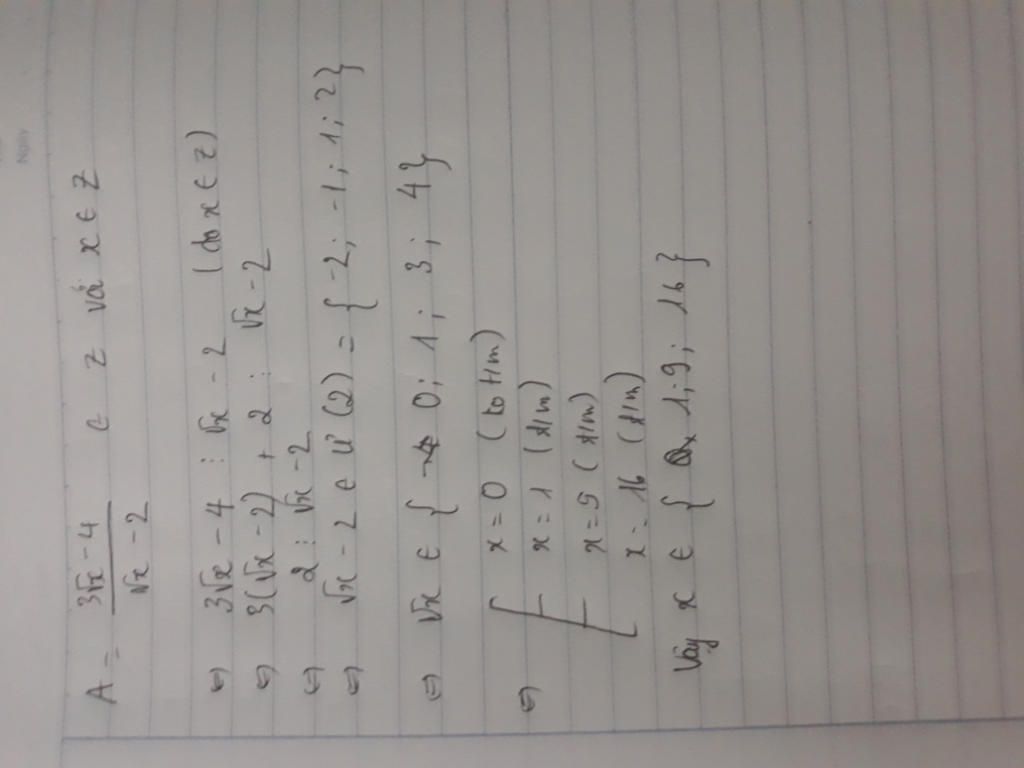 A = \frac{3\sqrt{x} - 4}{\sqrt{x} - 2} ∈ Z với x ∈ Z
⇔ 3√x - 4 ⋮ √x - 2 (do x ∈ Z)
⇔ 3(√x - 2) + 2 ⋮ √x - 2
⇔ 2 ⋮ √x - 2
⇔ √x - 2 ∈ Ư(2) = { -2; -1; 1; 2}
⇔ √x ∈ { 0; 1; 3; 4}
⇔ [ x = 0 (ko t/m)
x = 1 (t/m)
x = 9 (t/m)
x = 16 (t/m)
Vậy x ∈ { 1; 9; 16}